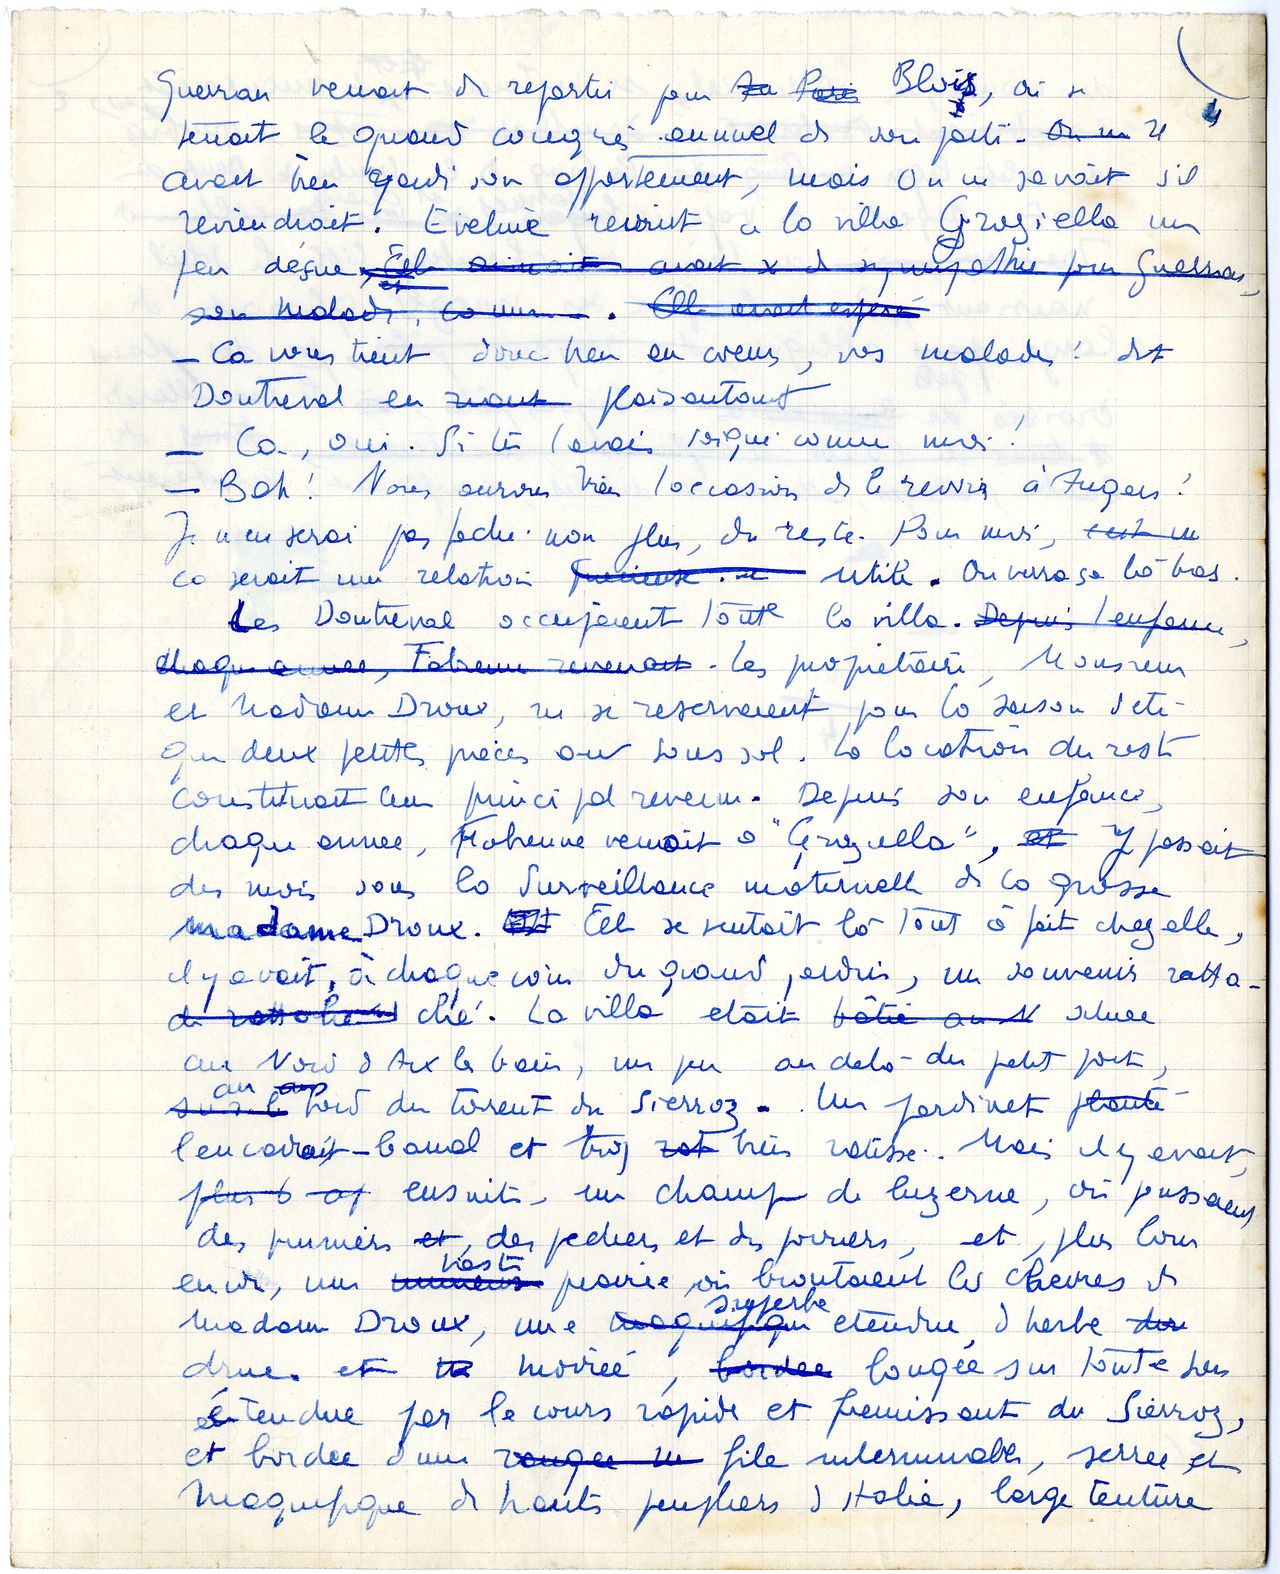 4
Guerran venait de repartir pour Paris Blois, où se
tenait le grand congrès annuel de son parti. On ne Il
avait bien gardé son appartement, mais on ne savait s'il
reviendrait. Eveline revint à la villa Graziella un
peu déçue, Elle aimait avait de sympathie pour Guerran,
son malade, comme. Elle avait espéré
– Ca vous tient donc bien au coeur, vos malades ! dit
Doutreval en riant plaisantant
– Ca, oui. Si tu l'avais soigné comme moi !
– Bah ! Vous aurez bien l'occasion de le revoir à Angers !
Je n'en serai pas faché non plus, du reste. Pour moi, c'est un
ca serait une relation précieuse utile. On verra ça là-bas.
Les Doutreval occupaient toute la villa. Depuis l'enfance,
chaque annee, Fabienne revenait. Les propriétaires, Monsieur
et Madame Droux, ne se reservaient pour la saison d'été
que deux petites pièces au sous sol. La location du reste
constituait leur principal revenu. Depuis son enfance,
chaque annee, Fabienne venait à "Graziella", et y passait
des mois sous la surveillance maternelle de la grosse
madame Droux. Elle se sentait là tout à fait chez elle,
il y avait, à chaque coin du grand jardin, un souvenir ratta-
de rattaché ché. La villa etait bâtie au N située
au Nord d'Aix les bains, un peu au delà du petit port,
sur le au bord du torrent du Sierroz. Un jardinet planté
l'encadrait – banal et trop rat bien ratissé. Mais il y avait,
plus b ensuite, un champ de luzerne, où poussaient
des pruniers et, des pechers et des poiriers, et, plus loin
encore, une immense vaste prairie, où broutaient les chevres de
Madame Droux, une magnifique superbe etendue d'herbe
drue et moirée, bordée longée sur toute son
étendue par le cours rapide et fremissant du Sierroz,
et bordee d'une rangee file interminable, serree et
magnifique de hauts peupliers d'Italie, large tenture